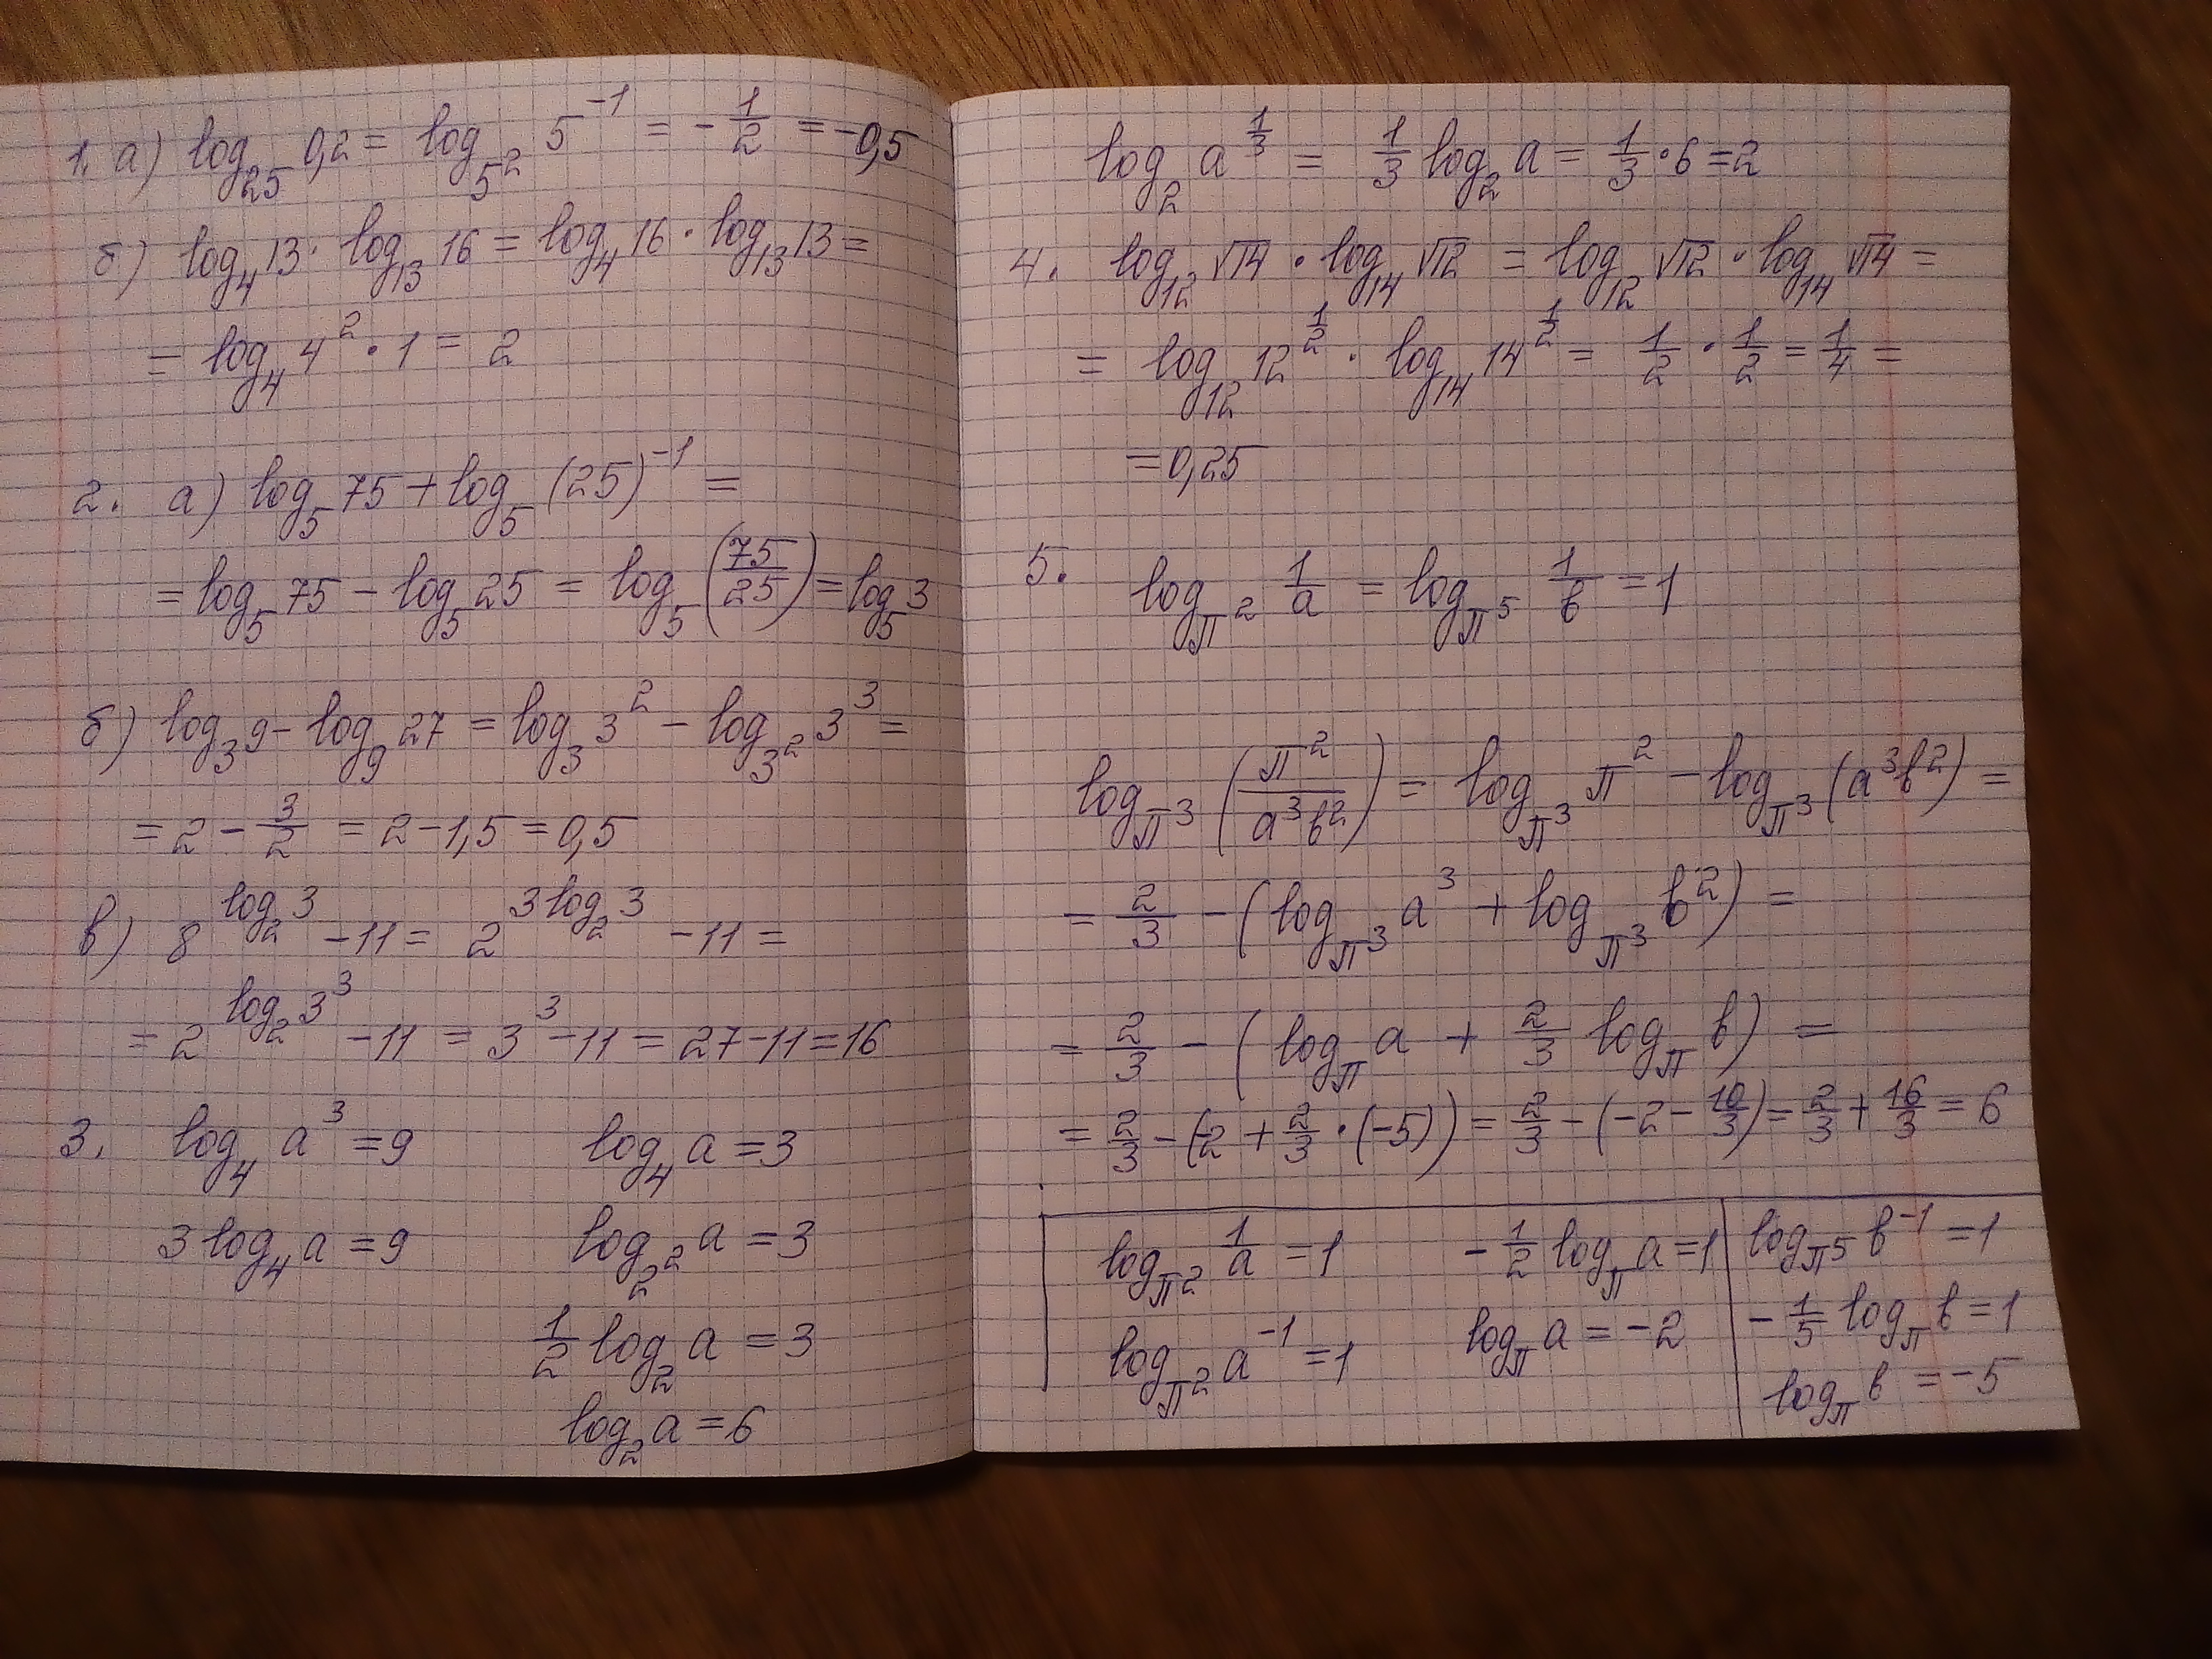 1. а) log₂₅ 0,2 = log₅² 5⁻¹ = - 1/2 = -0,5
б) log₄ 13 · log₁₃ 16 = log₄ 16 · log₁₃ 13 =
= log₄ 4² · 1 = 2
2. а) log₅ 75 + log₅ (25)⁻¹ =
= log₅ 75 - log₅ 25 = log₅ (75/25) = log₅ 3
б) log₃ 9 - log₉ 27 = log₃ 3² - log₃² 3³ =
= 2 - 3/2 = 2 - 1,5 = 0,5
в) 8^(log₂ 3) - 11 = 2^(3 log₂ 3) - 11 =
= 2^(log₂ 3³) - 11 = 3³ - 11 = 27 - 11 = 16
3. log₄ a³ = 9
3 log₄ a = 9
log₄ a = 3
log₂² a = 3
1/2 log₂ a = 3
log₂ a = 6
log₂ a^(1/3) = 1/3 log₂ a = 1/3 · 6 = 2
4. log₁₂ √14 · log₁₄ √12 = log₁₂ √12 · log₁₄ √14 =
= log₁₂ 12^(1/2) · log₁₄ 14^(1/2) = 1/2 · 1/2 = 1/4 =
= 0,25
5. log_π² 1/a = log_π⁵ 1/b = 1
log_π³ (π²/(a³b²)) = log_π³ π² - log_π³ (a³b²) =
= 2/3 - (log_π³ a³ + log_π³ b²) =
= 2/3 - (log_π a + 2/3 log_π b) =
= 2/3 - (-2 + 2/3 · (-5)) = 2/3 - (-2 - 10/3) = 2/3 + 16/3 = 6
log_π² 1/a = 1
log_π² a⁻¹ = 1
- 1/2 log_π a = 1
log_π a = -2
log_π⁵ b⁻¹ = 1
- 1/5 log_π b = 1
log_π b = -5